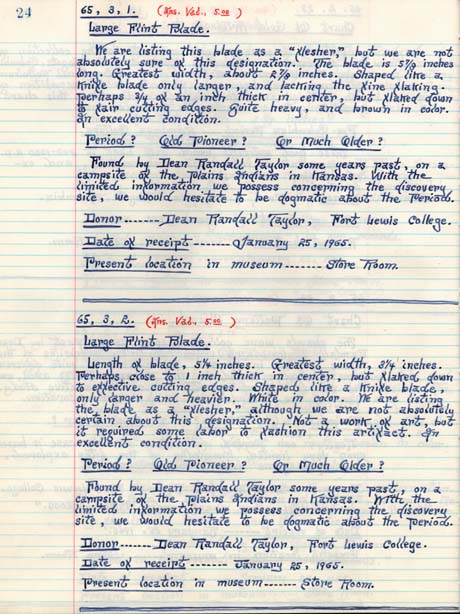 24
65, 3, 1. (Ins. Val., 5.00)
Large Flint Blade.
We are listing this blade as a "flesher," but we are not
absolutely sure of this designation. The blade is 5 7/8 inches
long. Greatest width, about 2 7/8 inches. Shaped like a
knife blade only larger, and lacking the fine flaking.
Perhaps 3/4 of an inch thick in center, but flaked down
to fair cutting edges. Quite heavy, and brown in color.
In excellent condition.
Period? Old Pioneer? Or Much Older?
Found by Dean Randall Taylor some years past, on a
campsite of the Plains Indians in Kansas. With the
limited information we possess concerning the discovery
site, we would hesitate to be dogmatic about the Period.
Donor ------- Dean Randall Taylor, Fort Lewis College.
Date of receipt ------- January 25, 1965.
Present location in museum ------- Store Room.
65, 3, 2. (Ins. Val., 5.00)
Large Flint Blade.
Length of blade, 5 1/4 inches. Greatest width, 3 1/4 inches.
Perhaps close to 1 inch thick in center, but flaked down
to effective cutting edges. Shaped like a knife blade,
only larger and heavier. White in color. We are listing
the blade as a "flesher," although we are not absolutely
certain about this designation. Not a work of art, but
it required some labor to fashion this artifact. In
excellent condition.
Period? Old Pioneer? Or Much Older?
Found by Dean Randall Taylor some years past, on a
campsite of the Plains Indians in Kansas. With the
limited information we possess concerning the discovery
site, we would hesitate to be dogmatic about the Period.
Donor ------- Dean Randall Taylor, Fort Lewis College.
Date of receipt ------- January 25, 1965.
Present location in museum ------- Store Room.